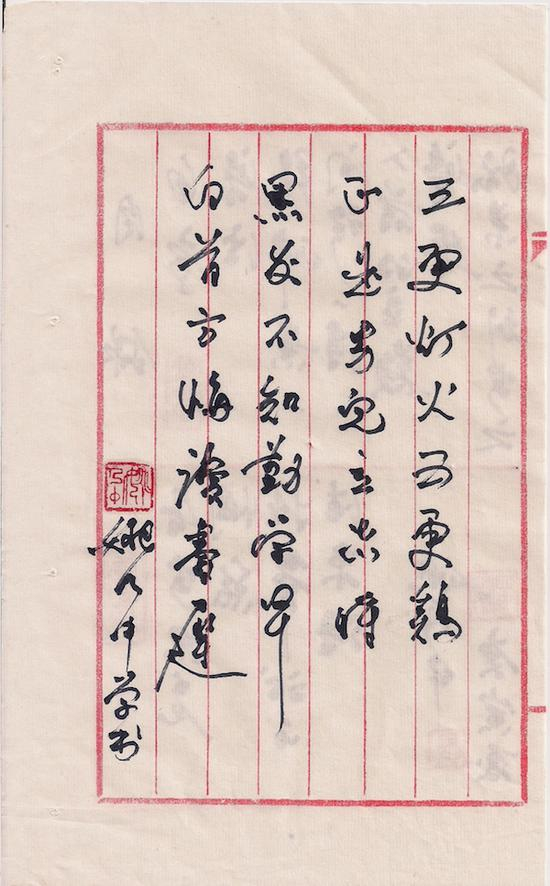 三更灯火五更鷄
正是男儿立志时
黑发不知勤学早
白首方悔读書遲
姚乃中学书